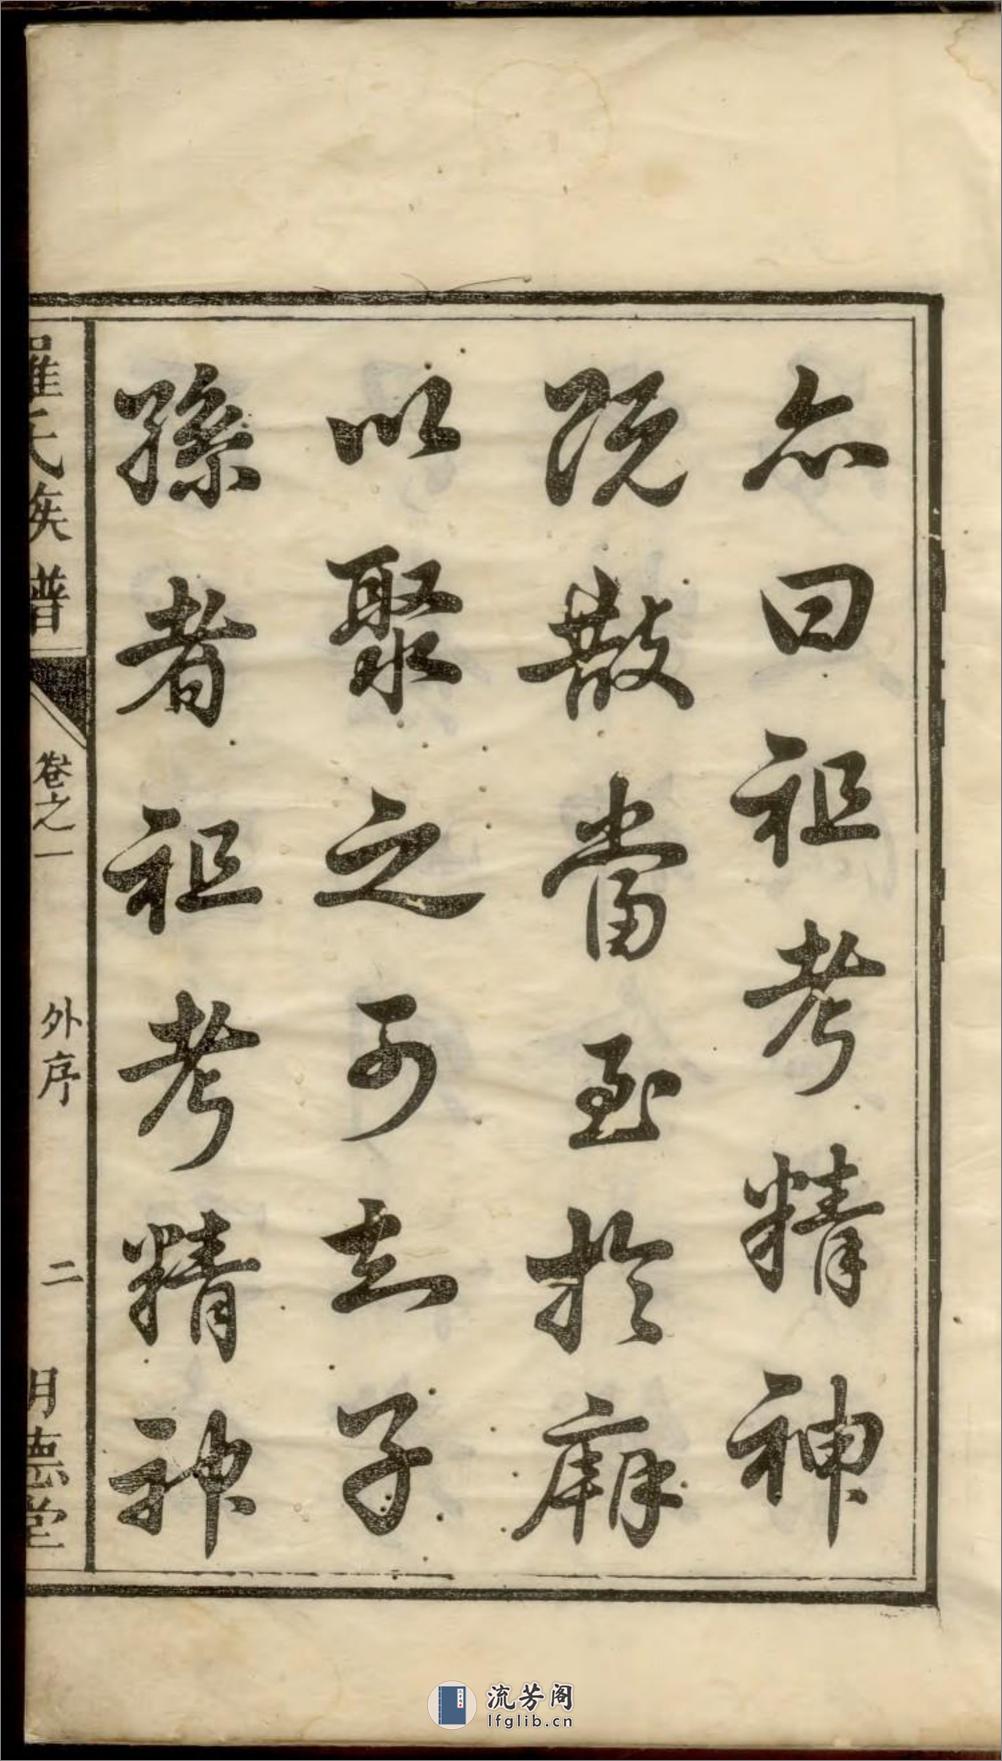 亦曰祖考精神
既散當至於廟
以聚之可立子
孫者祖考精神
羅氏族譜
卷之一
外序
二
明德堂
流芳阁
lfglib.cn